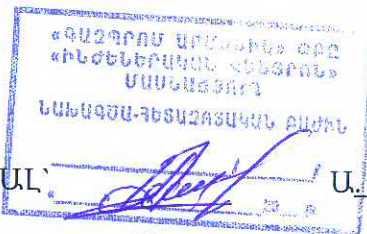 «ԳԱԶՊՐՈՄ ԱՐՄԵՆԻԱ» ՓԲԸ
«ԻՆԺԵՆԵՐԱԿԱՆ ԿԵՆՏՐՈՆ»
ՄԱՍՆԱՃՅՈՒՂ
ՆԱԽԱԳԾԱ-ՀԵՏԱԶՈՏԱԿԱՆ ԲԱԺԻՆ
ԱԼ՝ Ա.